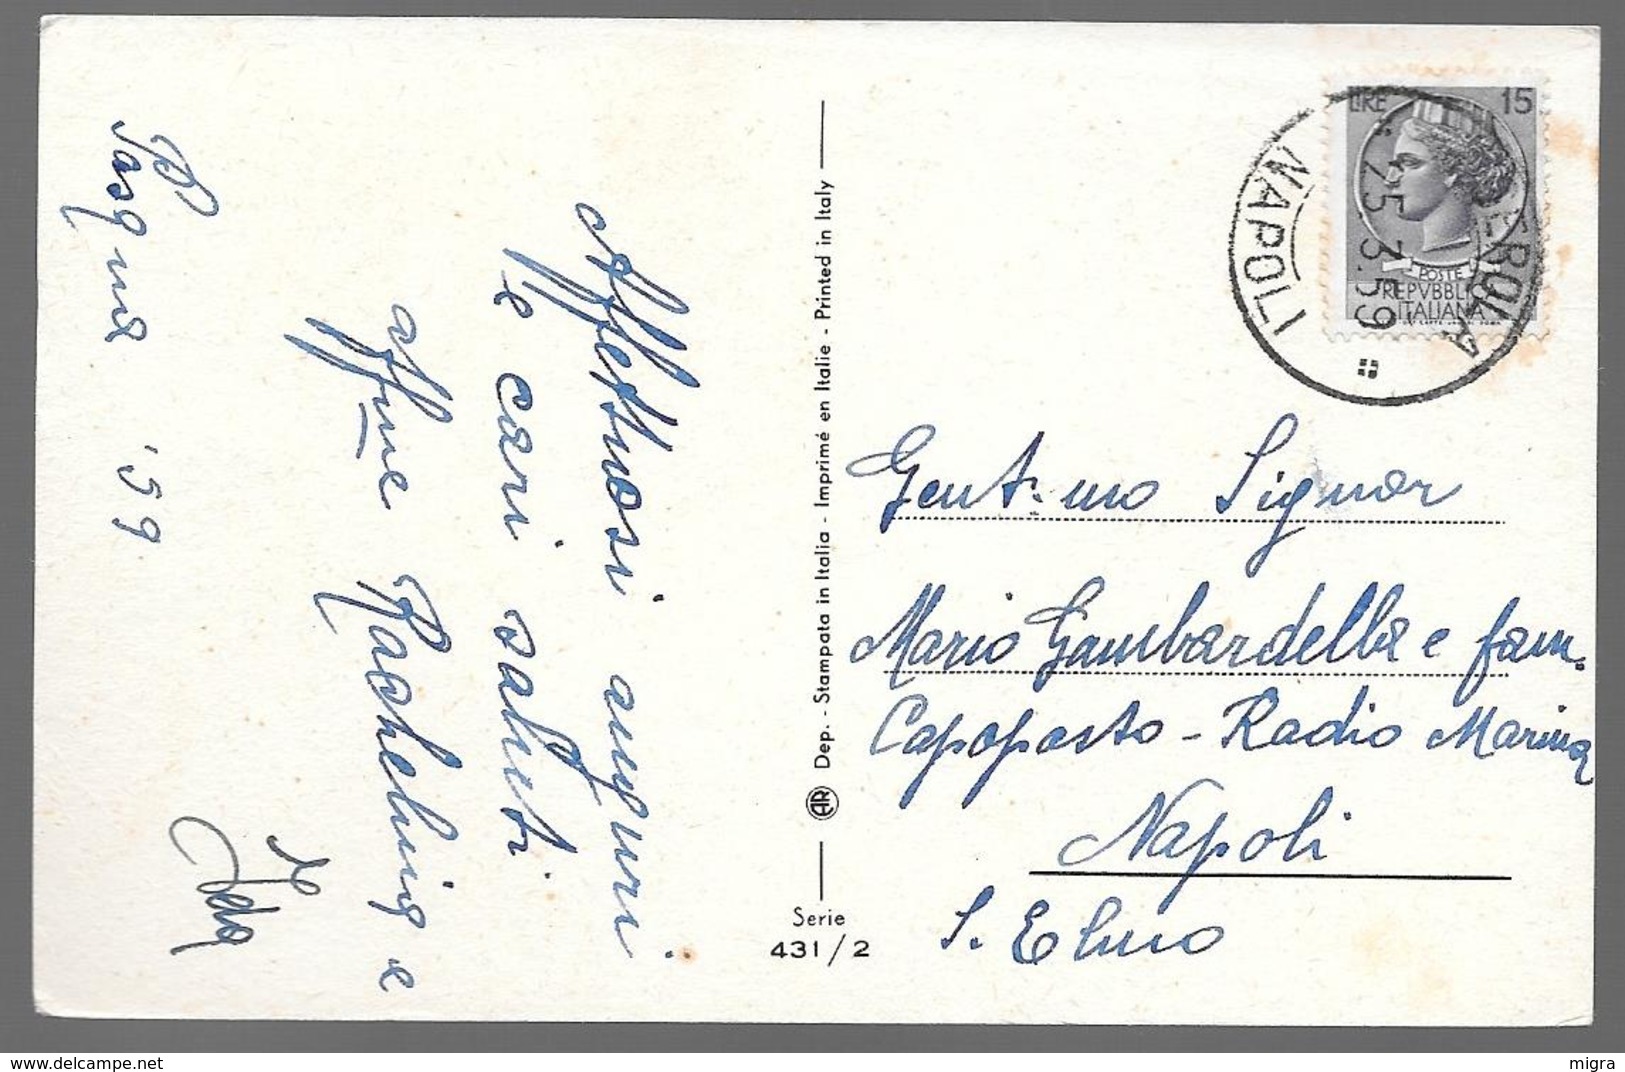 Affettuosi auguri
e cari saluti
aff.me Rachelina e
Ida
Pasqua '59
Dep. - Stampata in Italia - Imprimé en Italie - Printed in Italy
AR
Serie
431/2
LIRE 15
POSTE
REPVBBLICA
ITALIANA
NAPOLI
25.3.59
Gent.mo Signor
Mario Gambardella e fam.
Capoposto - Radio Marina
Napoli
S. Elmo
delcampe.net
migra